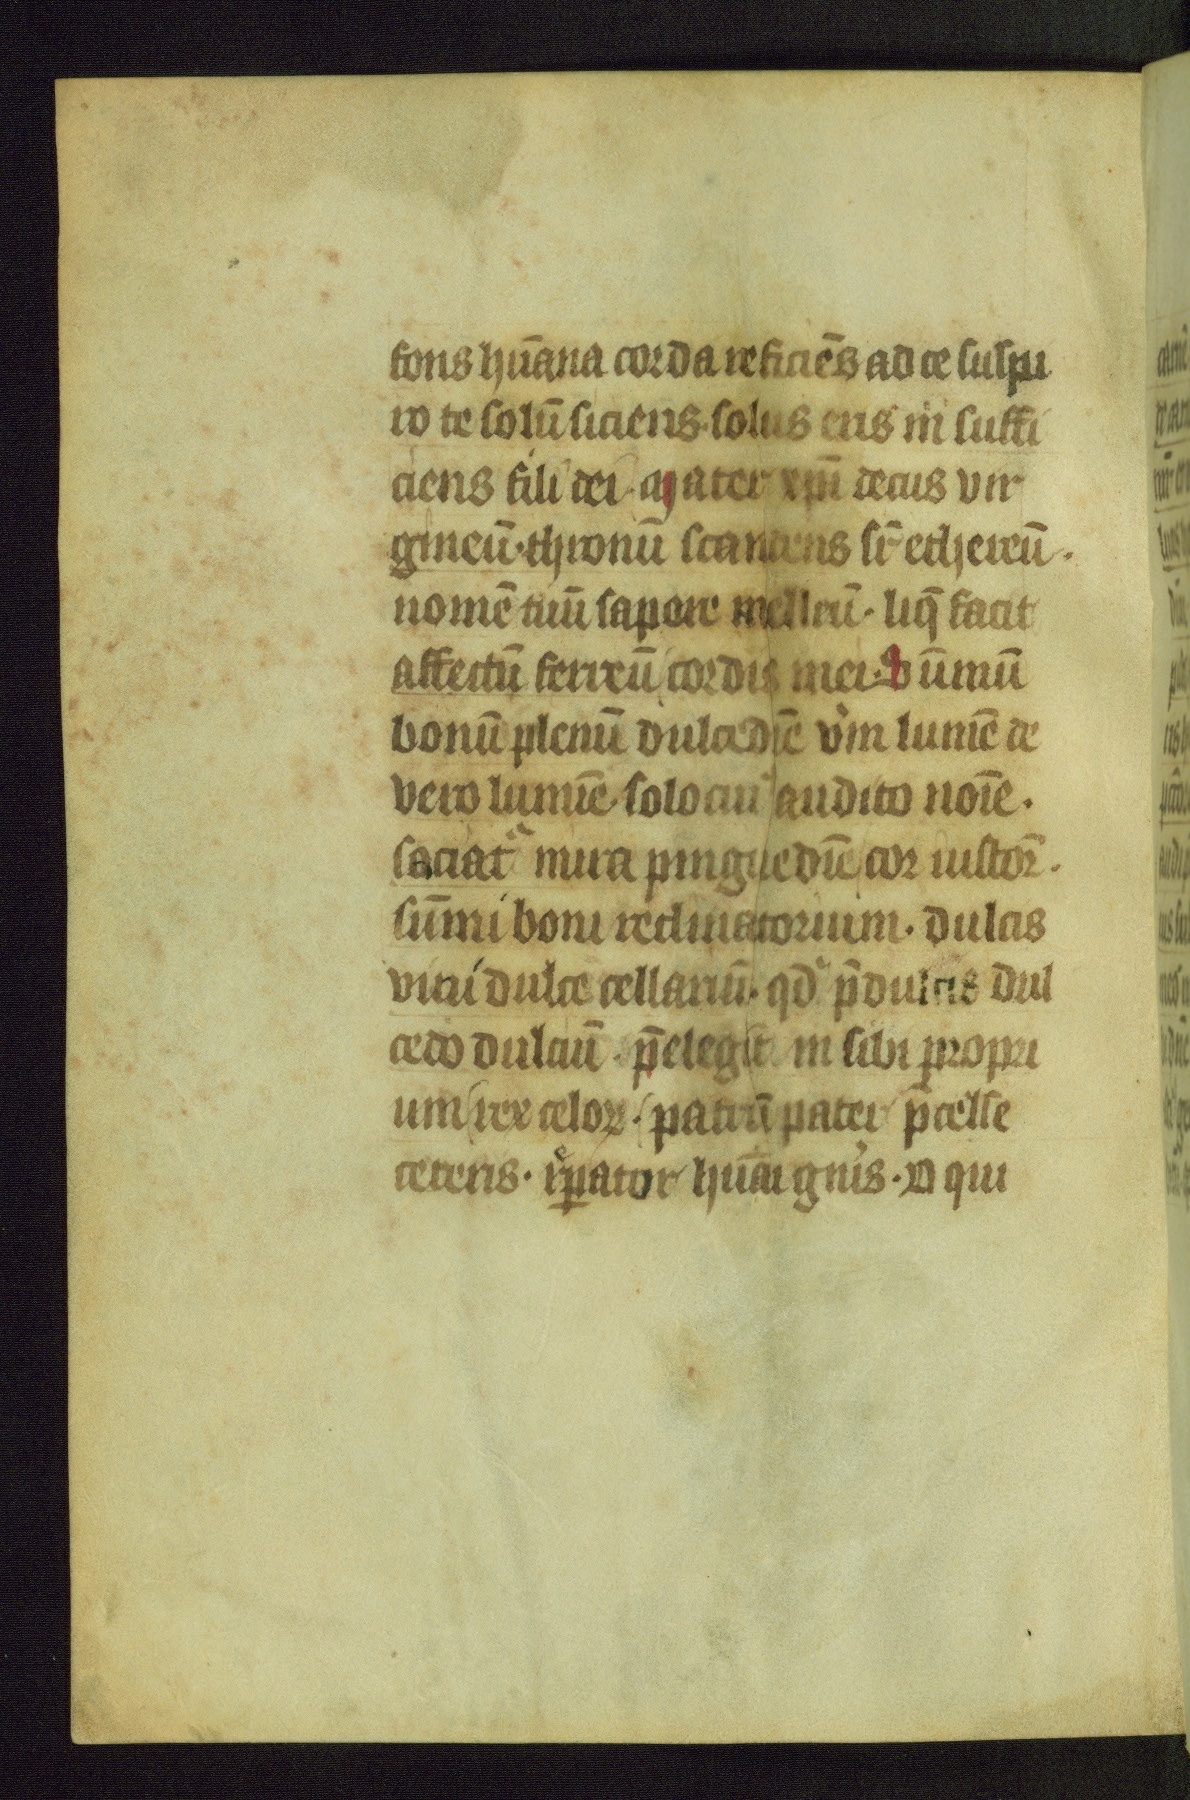 fons hūana corda reficiēs ad te suspi
ro te solū siciens. solus eris m̄ suffi
ciens fili dei. Mater xp̄i decus vir
gineū. thronū scandens sr̄ ethereū.
nomē tuū sapore melleū. liq̄ facit
affectū ferreū cordis mei. Sūmū
bonū plenū dulcedīe vm̄ lumē de
vero lumīe. solo cui audito noīe.
saciat mira pinguedīe cor iustor̄.
sūmi boni reclinatorium. dulcis
viri dulce cellariū. qd̄ p̄dulcis dul
cedo dulciū. p̄elegit in sibi propri
um rex celoꝝ. patrū pater p̄celse
ceteris. rꝑator hūai gnis. O qui